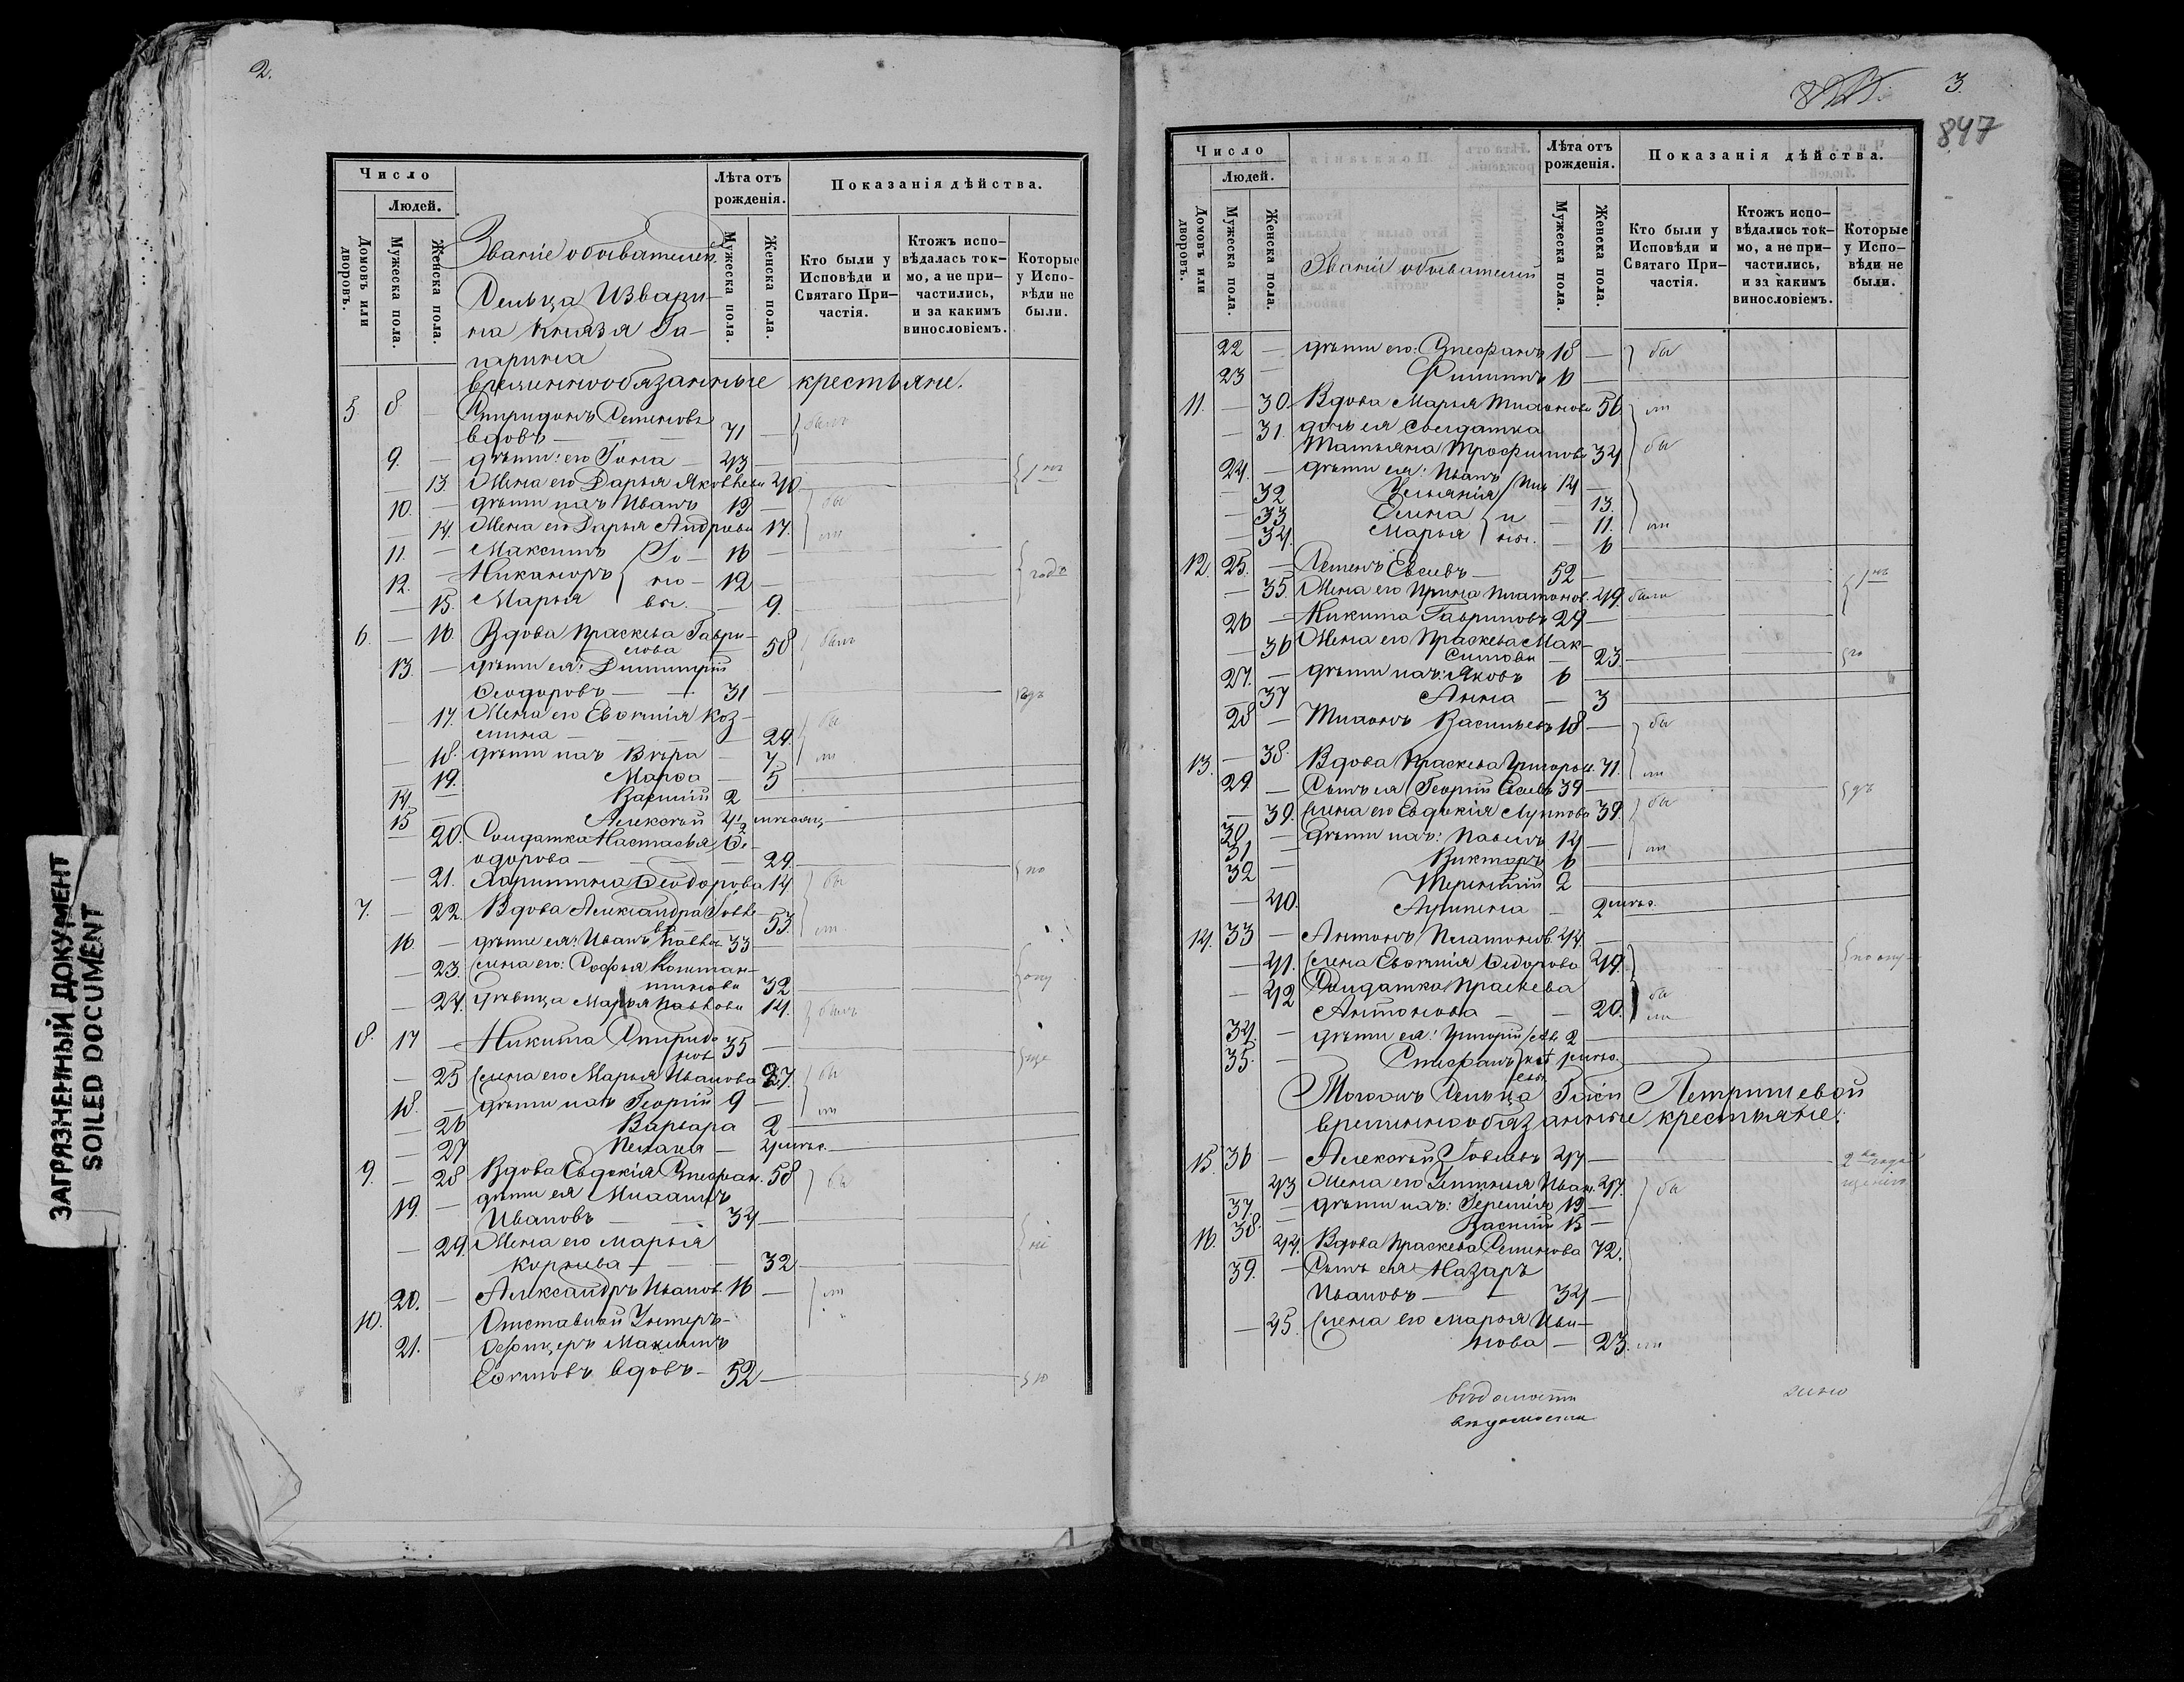 2.
Число
Людей.
Домовъ или дворовъ.
Мужеска пола.
Женска пола.
Званіе обывателей.
Лѣта отъ рожденія.
Мужеска пола.
Женска пола.
Показанія дѣйства.
Кто были у Исповѣди и Святаго При-частія.
Ктожъ испо-вѣдалась ток-мо, а не при-частились, и за какимъ винословіемъ.
Которые у Испо-вѣди не были.
Сельца Извари-
на Князя Га-
гарина
временнообязанные крестьяне.
5 8 — Спиридонъ Семеновъ
вдовъ — 71 —
9. — дѣти: его Іона — 43 —
— 13. Жена его Дарья Яковлева 40
10. — дѣти ихъ Иванъ 19 —
— 14. Жена его Дарья Андреева 17.
11. — Максимъ Іо- 16 —
12. — Никаноръ но- 12 —
— 15. Марья вы. — 9.
6. — 16. Вдова Праскева Гаври-
лова — 58
13. — дѣти ея: Димитрій
Ѳеодоровъ — 31
— 17. Жена его Евфимія Коз-
мина — 29.
— 18. дѣти ихъ Вѣра — 7
— 19. Марѳа — 5
14. — Василій 2
15 — Алексѣй 4 1/2 мѣсяц.
— 20. Солдатка Настасья Ѳе-
одорова — 29.
— 21. Харитина Ѳеодорова 14
7. — 22. Вдова Александра Іовле-
ва — 53.
16. — дѣти ея: Иванъ Павлов. 33
— 23. жена его: Софья Констан-
тинова 32
— 24. дѣвица Марья Павлова 14.
8. 17 — Никита Спиридо
новъ 35 —
— 25 жена его Марья Иванова 27.
18. — дѣти ихъ Георгій 9 —
— 26 Варвара 2
— 27 Пелагея — 4 мѣс.
9. — 28 Вдова Евдокія Стефан. 58
19. — дѣти ея
Ивановъ — 34 —
— 29. Жена его Марья
Корнева — 32
20. — Александръ Иванов. 16 —
10. Отставной Унтеръ-
21. — Офицеръ Максимъ
Ефимовъ вдовъ — 52 —
3.
847
Число
Людей.
Домовъ или дворовъ.
Мужеска пола.
Женска пола.
Званіе обывателей
Лѣта отъ рожденія.
Мужеска пола.
Женска пола.
Показанія дѣйства.
Кто были у Исповѣди и Святаго При-частія.
Ктожъ испо-вѣдались ток-мо, а не при-частились, и за какимъ винословіемъ.
Которые у Испо-вѣди не были.
22 — дѣти его: Стефанъ 18 —
23 — Филиппъ 6 —
11. — 30. Вдова Марья 56
— 31. дочь ея солдатка
Татьяна Трофимова 34
24. — дѣти ея: Иванъ 14 —
— 32 13.
— 33 Елена — 11.
— 34. Марья — 6
12. 25. — Семенъ Евсевъ 52 —
— 35. Жена его Ирина Платонов. 49.
26 — Никита Гавриловъ 24 —
— 36 Жена его Праскева Мак-
симова — 23.
27. — дѣти ихъ: Яковъ 6 —
— 37 Анна — 3
28 — Васильевъ 18 —
13. — 38. Вдова Праскева Григорьев. 71.
29 — Сынъ ея Георгій Евсевъ 39 —
— 39. жена его Евдокія Луппова 39.
30 — дѣти ихъ: Павелъ 14 —
31 — Викторъ 6
32 — Терентій 2
— 40. Агрипена — 2 мѣс.
14. 33 — Антонъ Платонов. 44. —
— 41. жена Евфимія Ѳедорова 49.
— 42 Солдатка Праскева
Антонова — 20.
34. — дѣти ея: Григорій 2 —
35. — Стефанъ
Тогожъ Сельца Г-жи Петрищевой
временнообязанные крестьяне:
15 36 — Алексѣй Іовлевъ 47 —
— 43 Жена его Устинія Иван. 47.
37. — дѣти ихъ: Іеремія 19 —
38. — Василій 15 —
16. 44. Вдова Праскева Семенова 72.
39. — Сынъ ея Назаръ
Ивановъ — 34 —
— 45. жена его Марья Ива-
нова — 23.
вѣдомости
вѣдомости
ЗАГРЯЗНЕННЫЙ ДОКУМЕНТ
SOILED DOCUMENT